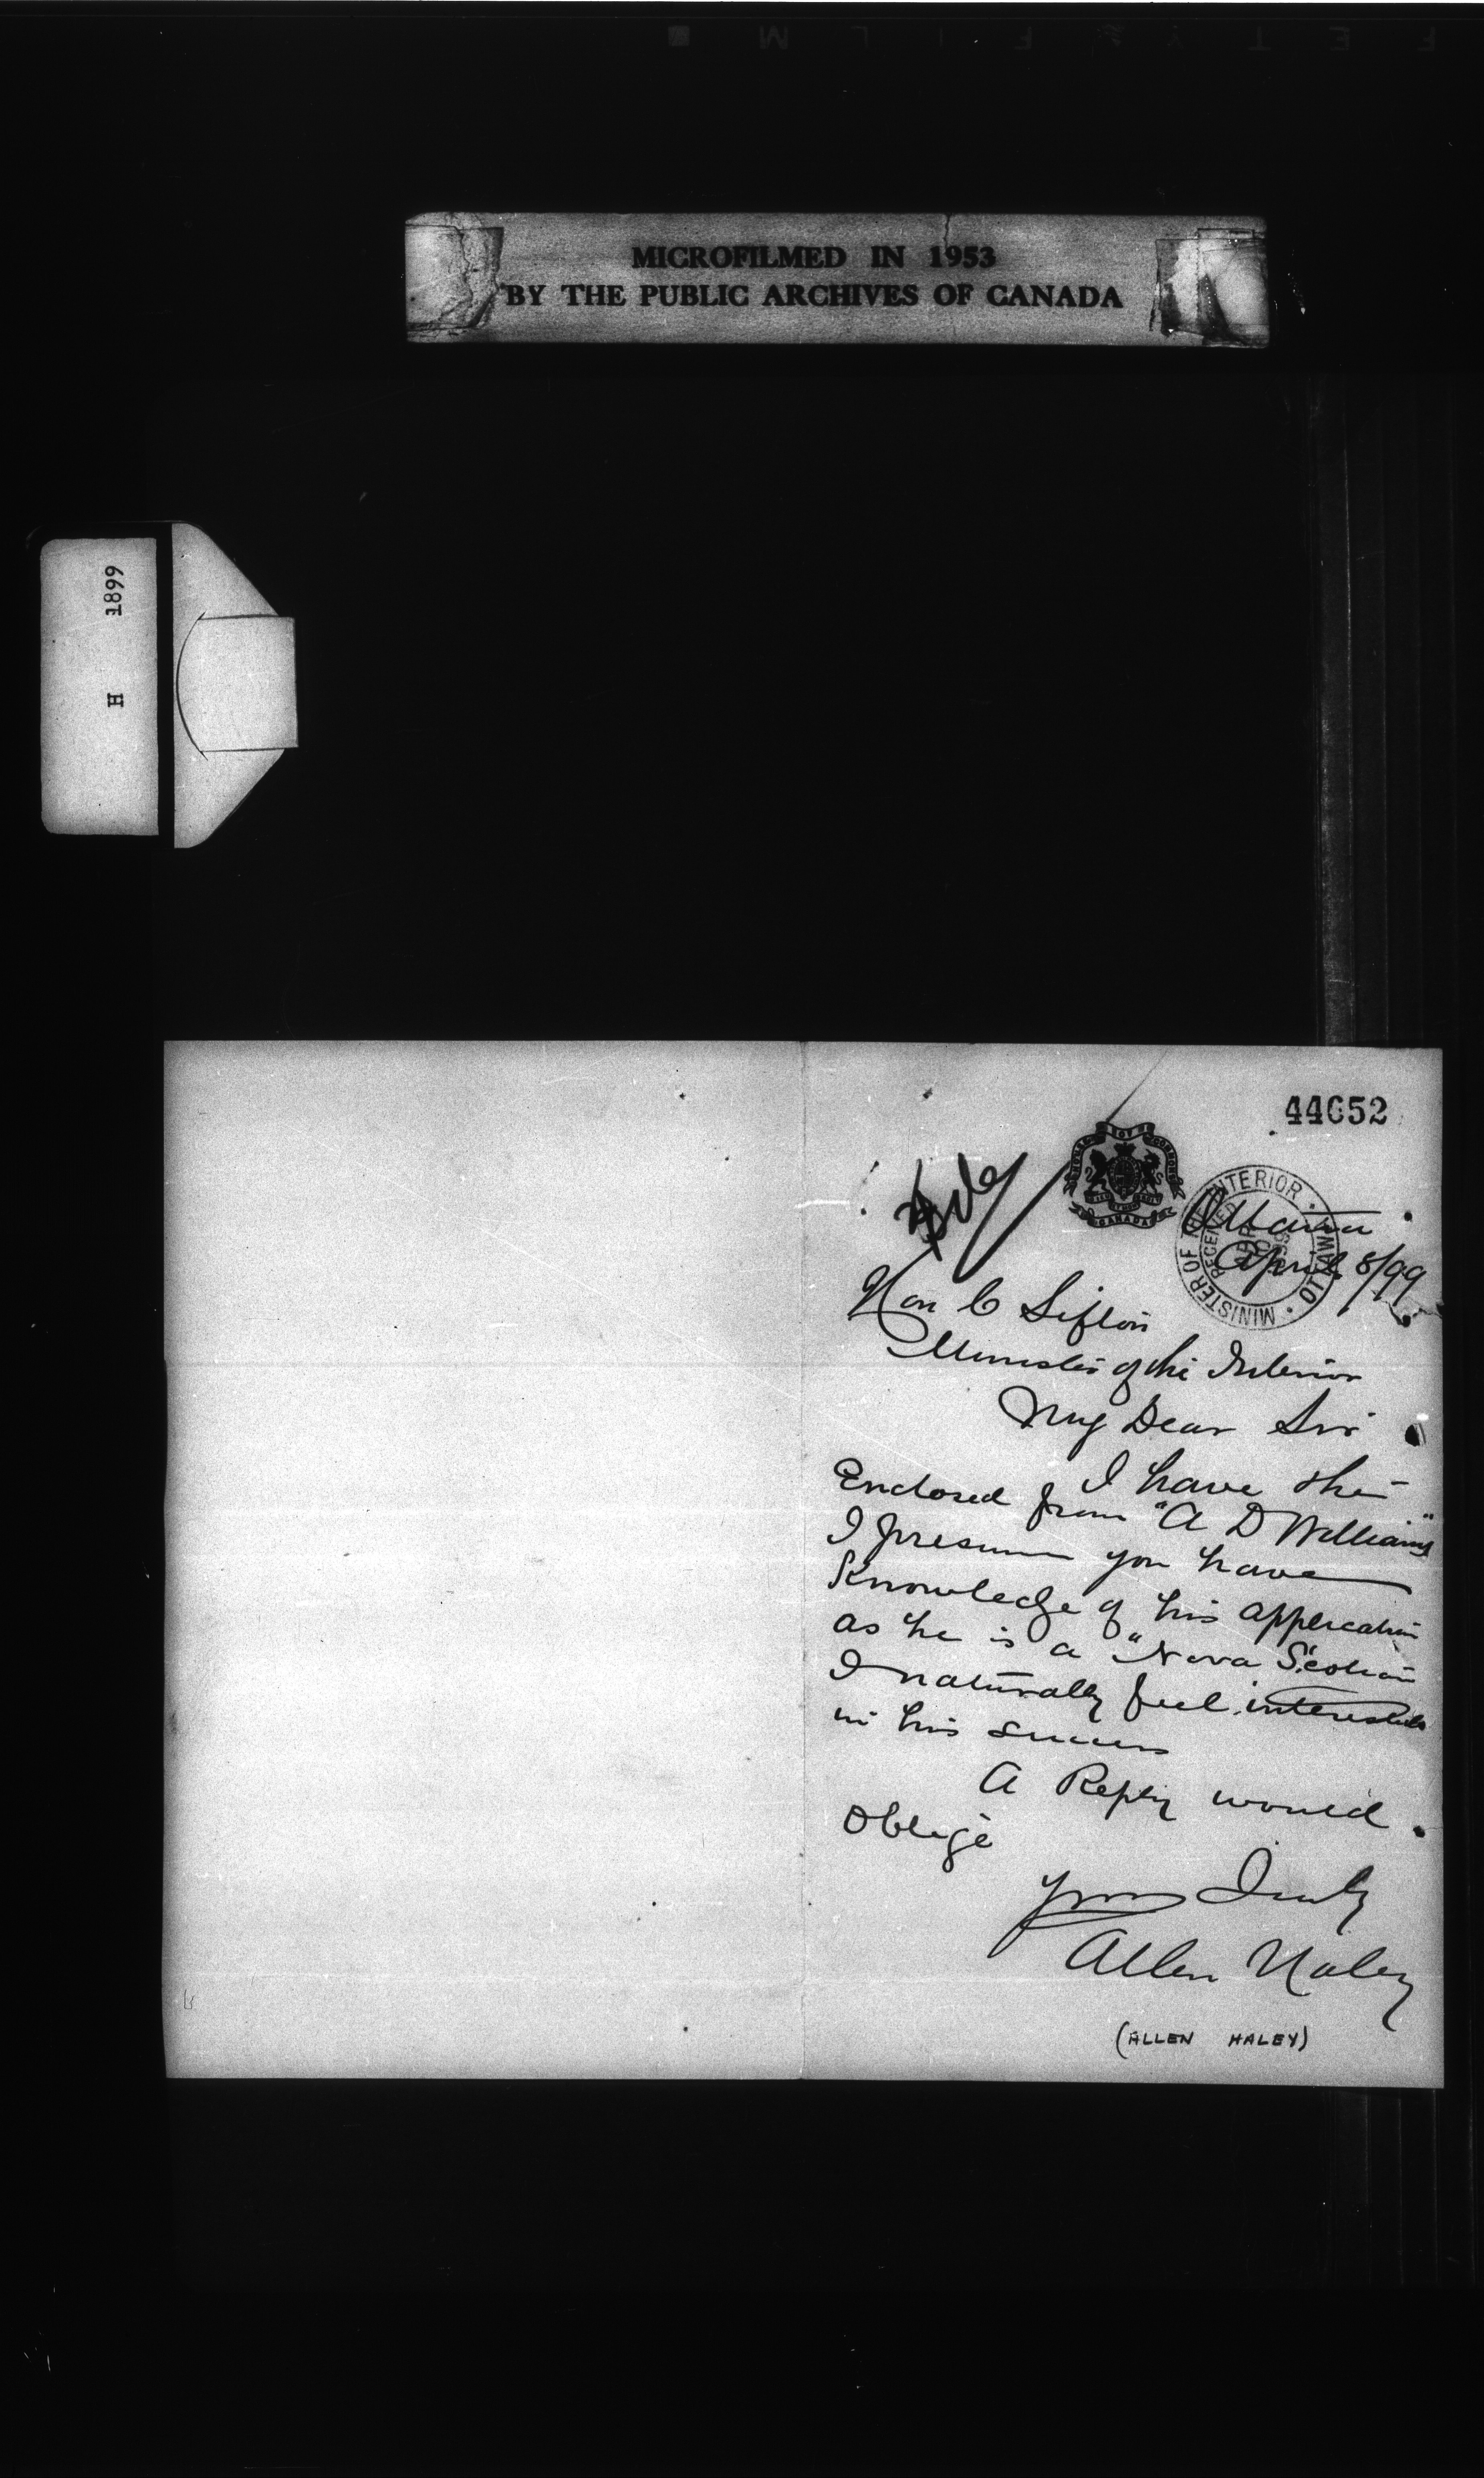 MICROFILMED IN 1953
BY THE PUBLIC ARCHIVES OF CANADA
H 1899
44652
File
HOUSE OF COMMONS
CANADA
MINISTER OF THE INTERIOR
RECEIVED
APR 10 1899
OTTAWA
Ottawa
April 8/99
Hon C Sifton
Minister of the Interior
My Dear Sir
I have the
Enclosed from "A D Williams"
I presume you have
Knowledge of his application
as he is a "Nova Scotian
I naturally feel interested
in his success
A Reply would
Oblige
Yours Truly
Allen Haley
(ALLEN HALEY)